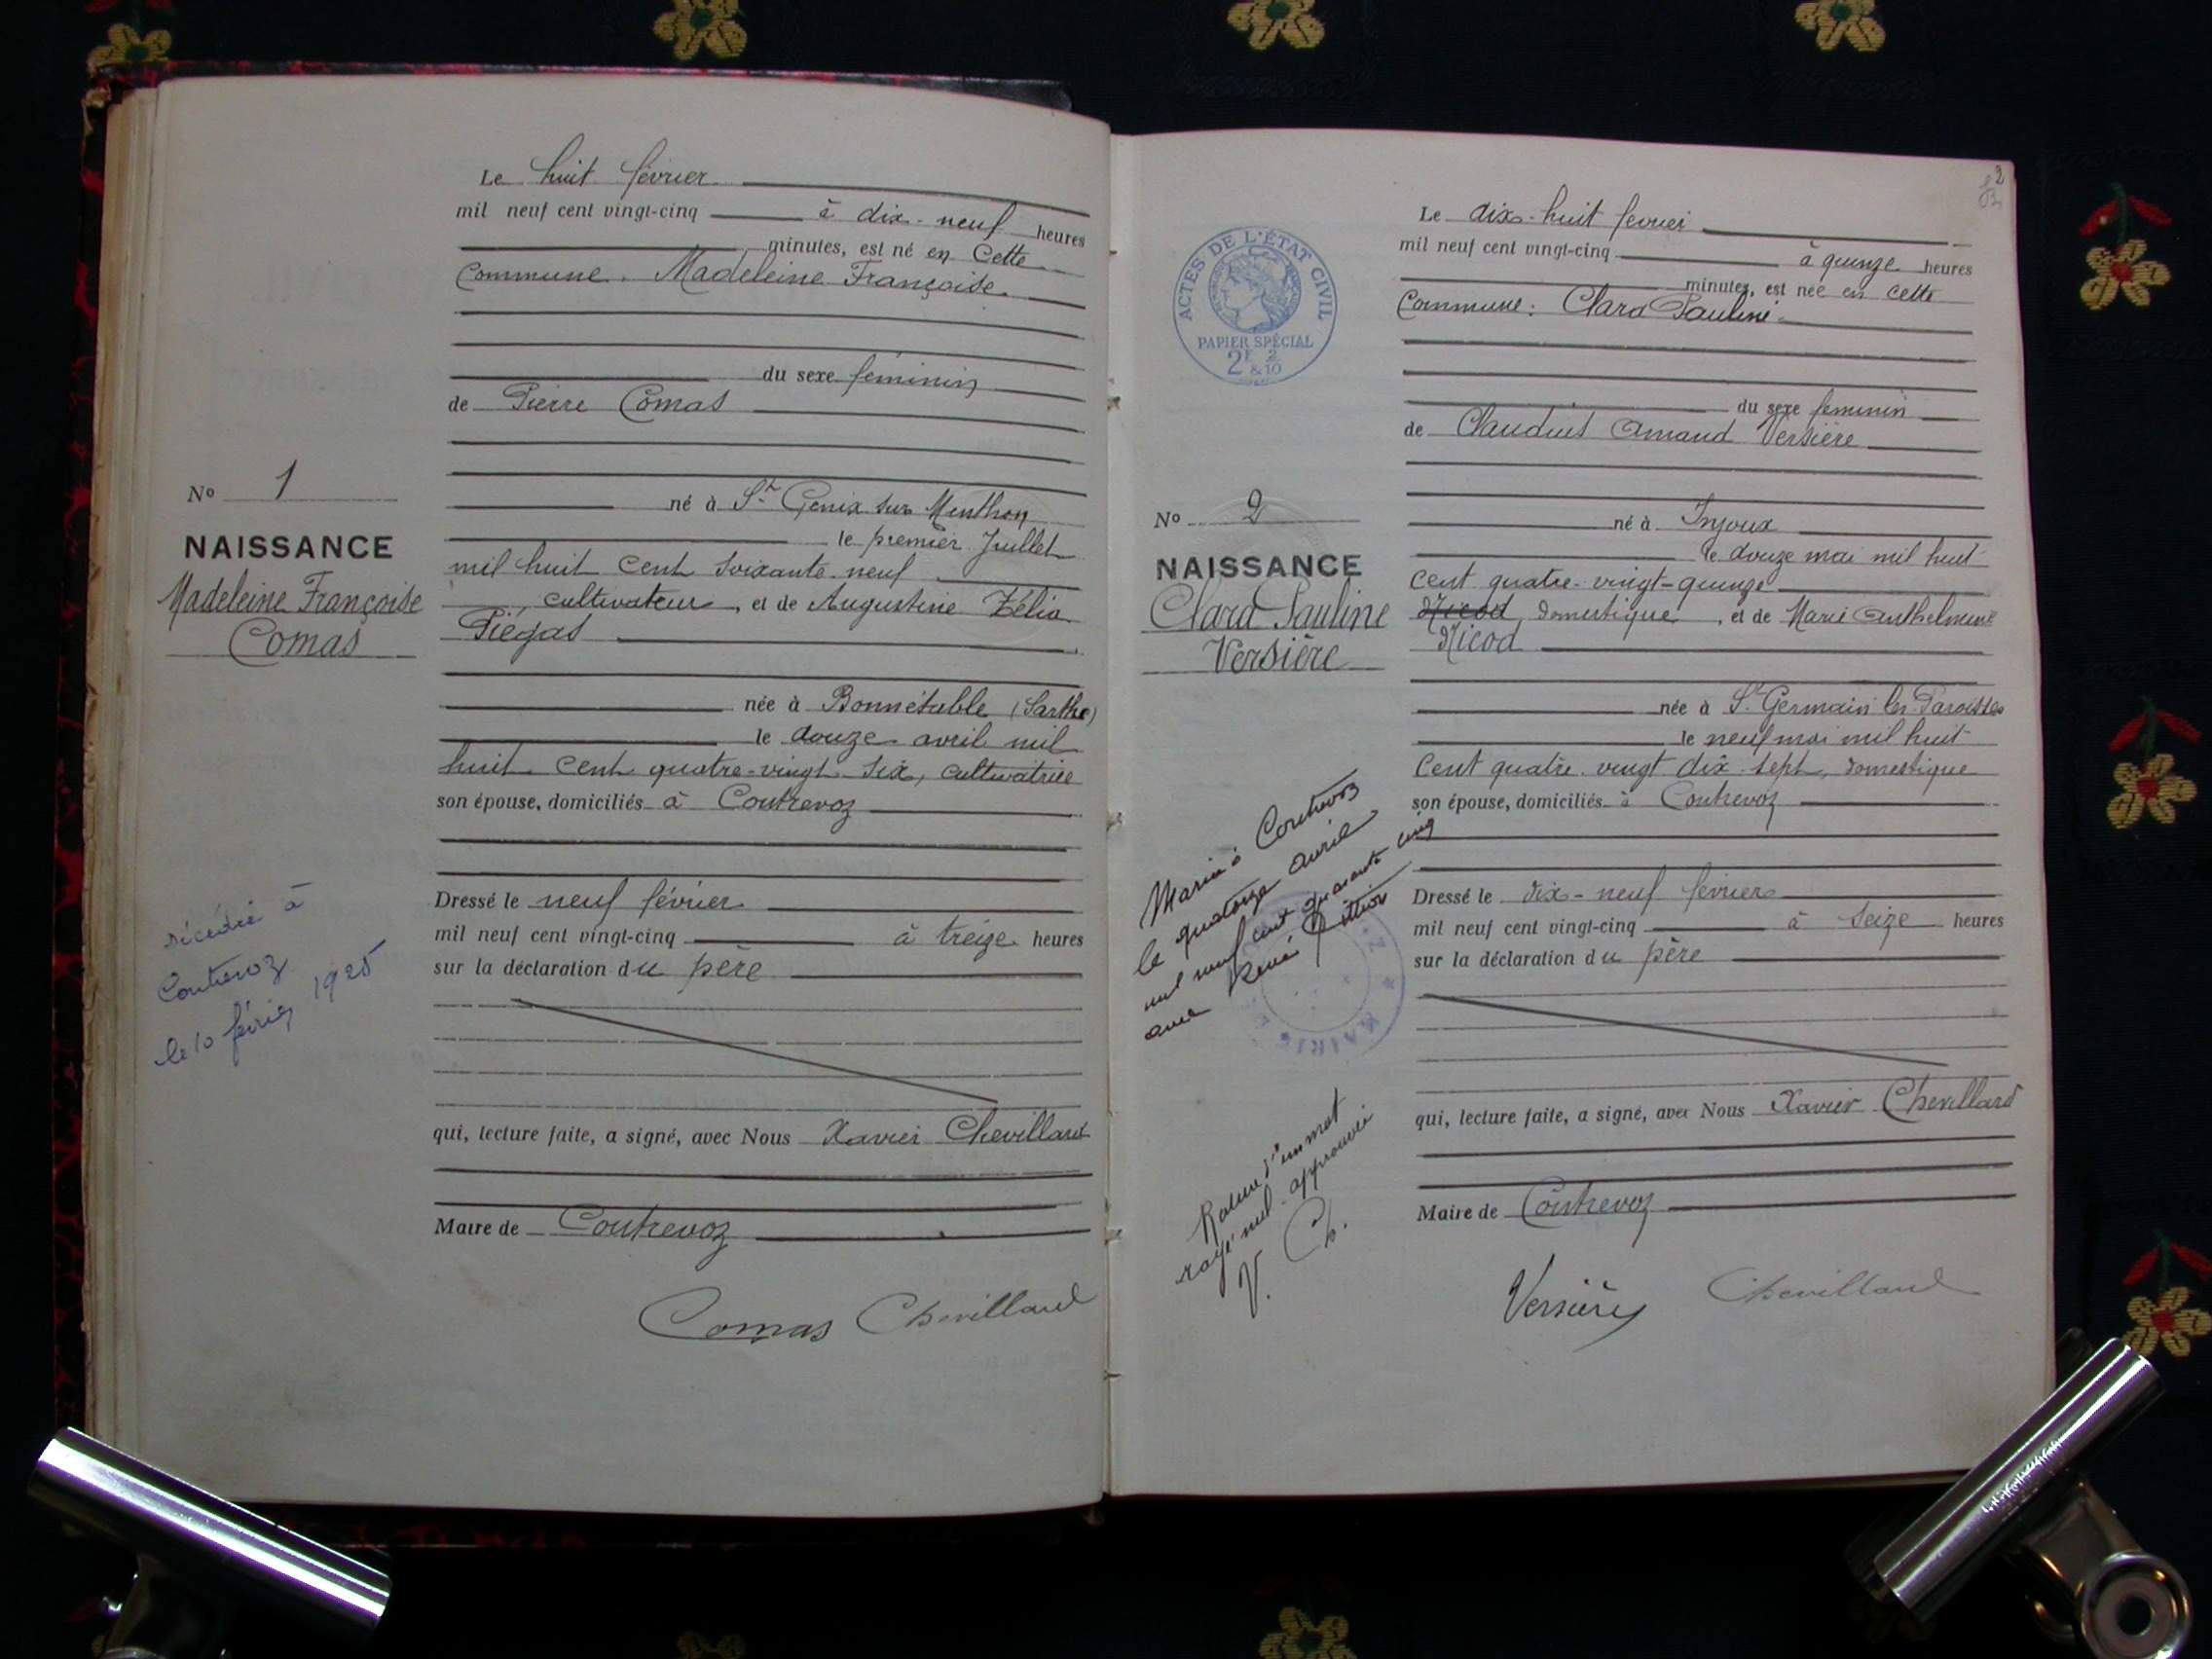 Le huit février
mil neuf cent vingt-cinq à dix-neuf heures
minutes, est né en Cette
Commune. Madeleine Françoise.
du sexe féminin
de Pierre Comas
né à St Genix sur Menthon
le premier Juillet
mil huit cent soixante-neuf
cultivateur, et de Augustine Zélia
Piégas
née à Bonnétable (Sarthe)
le douze avril mil
huit cent quatre-vingt-six, cultivatrice
son épouse, domiciliés à Contrevoz
Dressé le neuf février
mil neuf cent vingt-cinq à treize heures
sur la déclaration du père
qui, lecture faite, a signé, avec Nous Xavier Chevillard
Maire de Contrevoz
Comas Chevillard
No 1
NAISSANCE
Madeleine Françoise
Comas
décédée à
Contrevoz
le 10 février 1925
2
Le dix-huit fevrier
mil neuf cent vingt-cinq à quinze heures
minutes, est née en cette
Commune: Clara Pauline
du sexe feminin
de Claudius Amand Versière
né à Injoux
le douze mai mil huit
cent quatre-vingt-quinze
Nicod, domestique, et de Marie Anthelmine
Nicod
née à St Germain les Paroisses
le neuf mai mil huit
cent quatre-vingt dix-sept, domestique
son épouse, domiciliés à Contrevoz
Dressé le dix-neuf février
mil neuf cent vingt-cinq à seize heures
sur la déclaration du père
qui, lecture faite, a signé, avec Nous Xavier Chevillard
Maire de Contrevoz
Versière Chevillard
ACTES DE L'ÉTAT CIVIL
PAPIER SPÉCIAL
2F 2
&10
No 2
NAISSANCE
Clara Pauline
Versière
Mariée à Contrevoz
le quatorze avril
mil neuf cent quarante cinq
avec René
MAIRIE
Rature d'un mot
rayé nul approuvée
V. Ch.